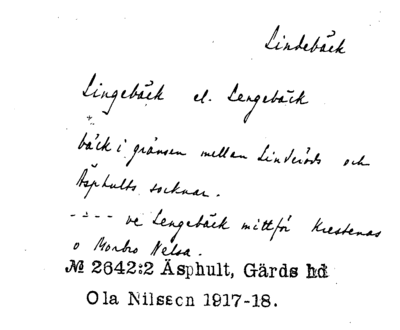 Lindebäck
Lingebäck el. Lengebäck
bäck i gränsen mellan Linderöds och
Äsphults socknar.
----- ve Lengebäck mittför Krestenas
o Morbro Nelsa.
№ 2642:2 Äsphult, Gärds hd
Ola Nilsson 1917-18.